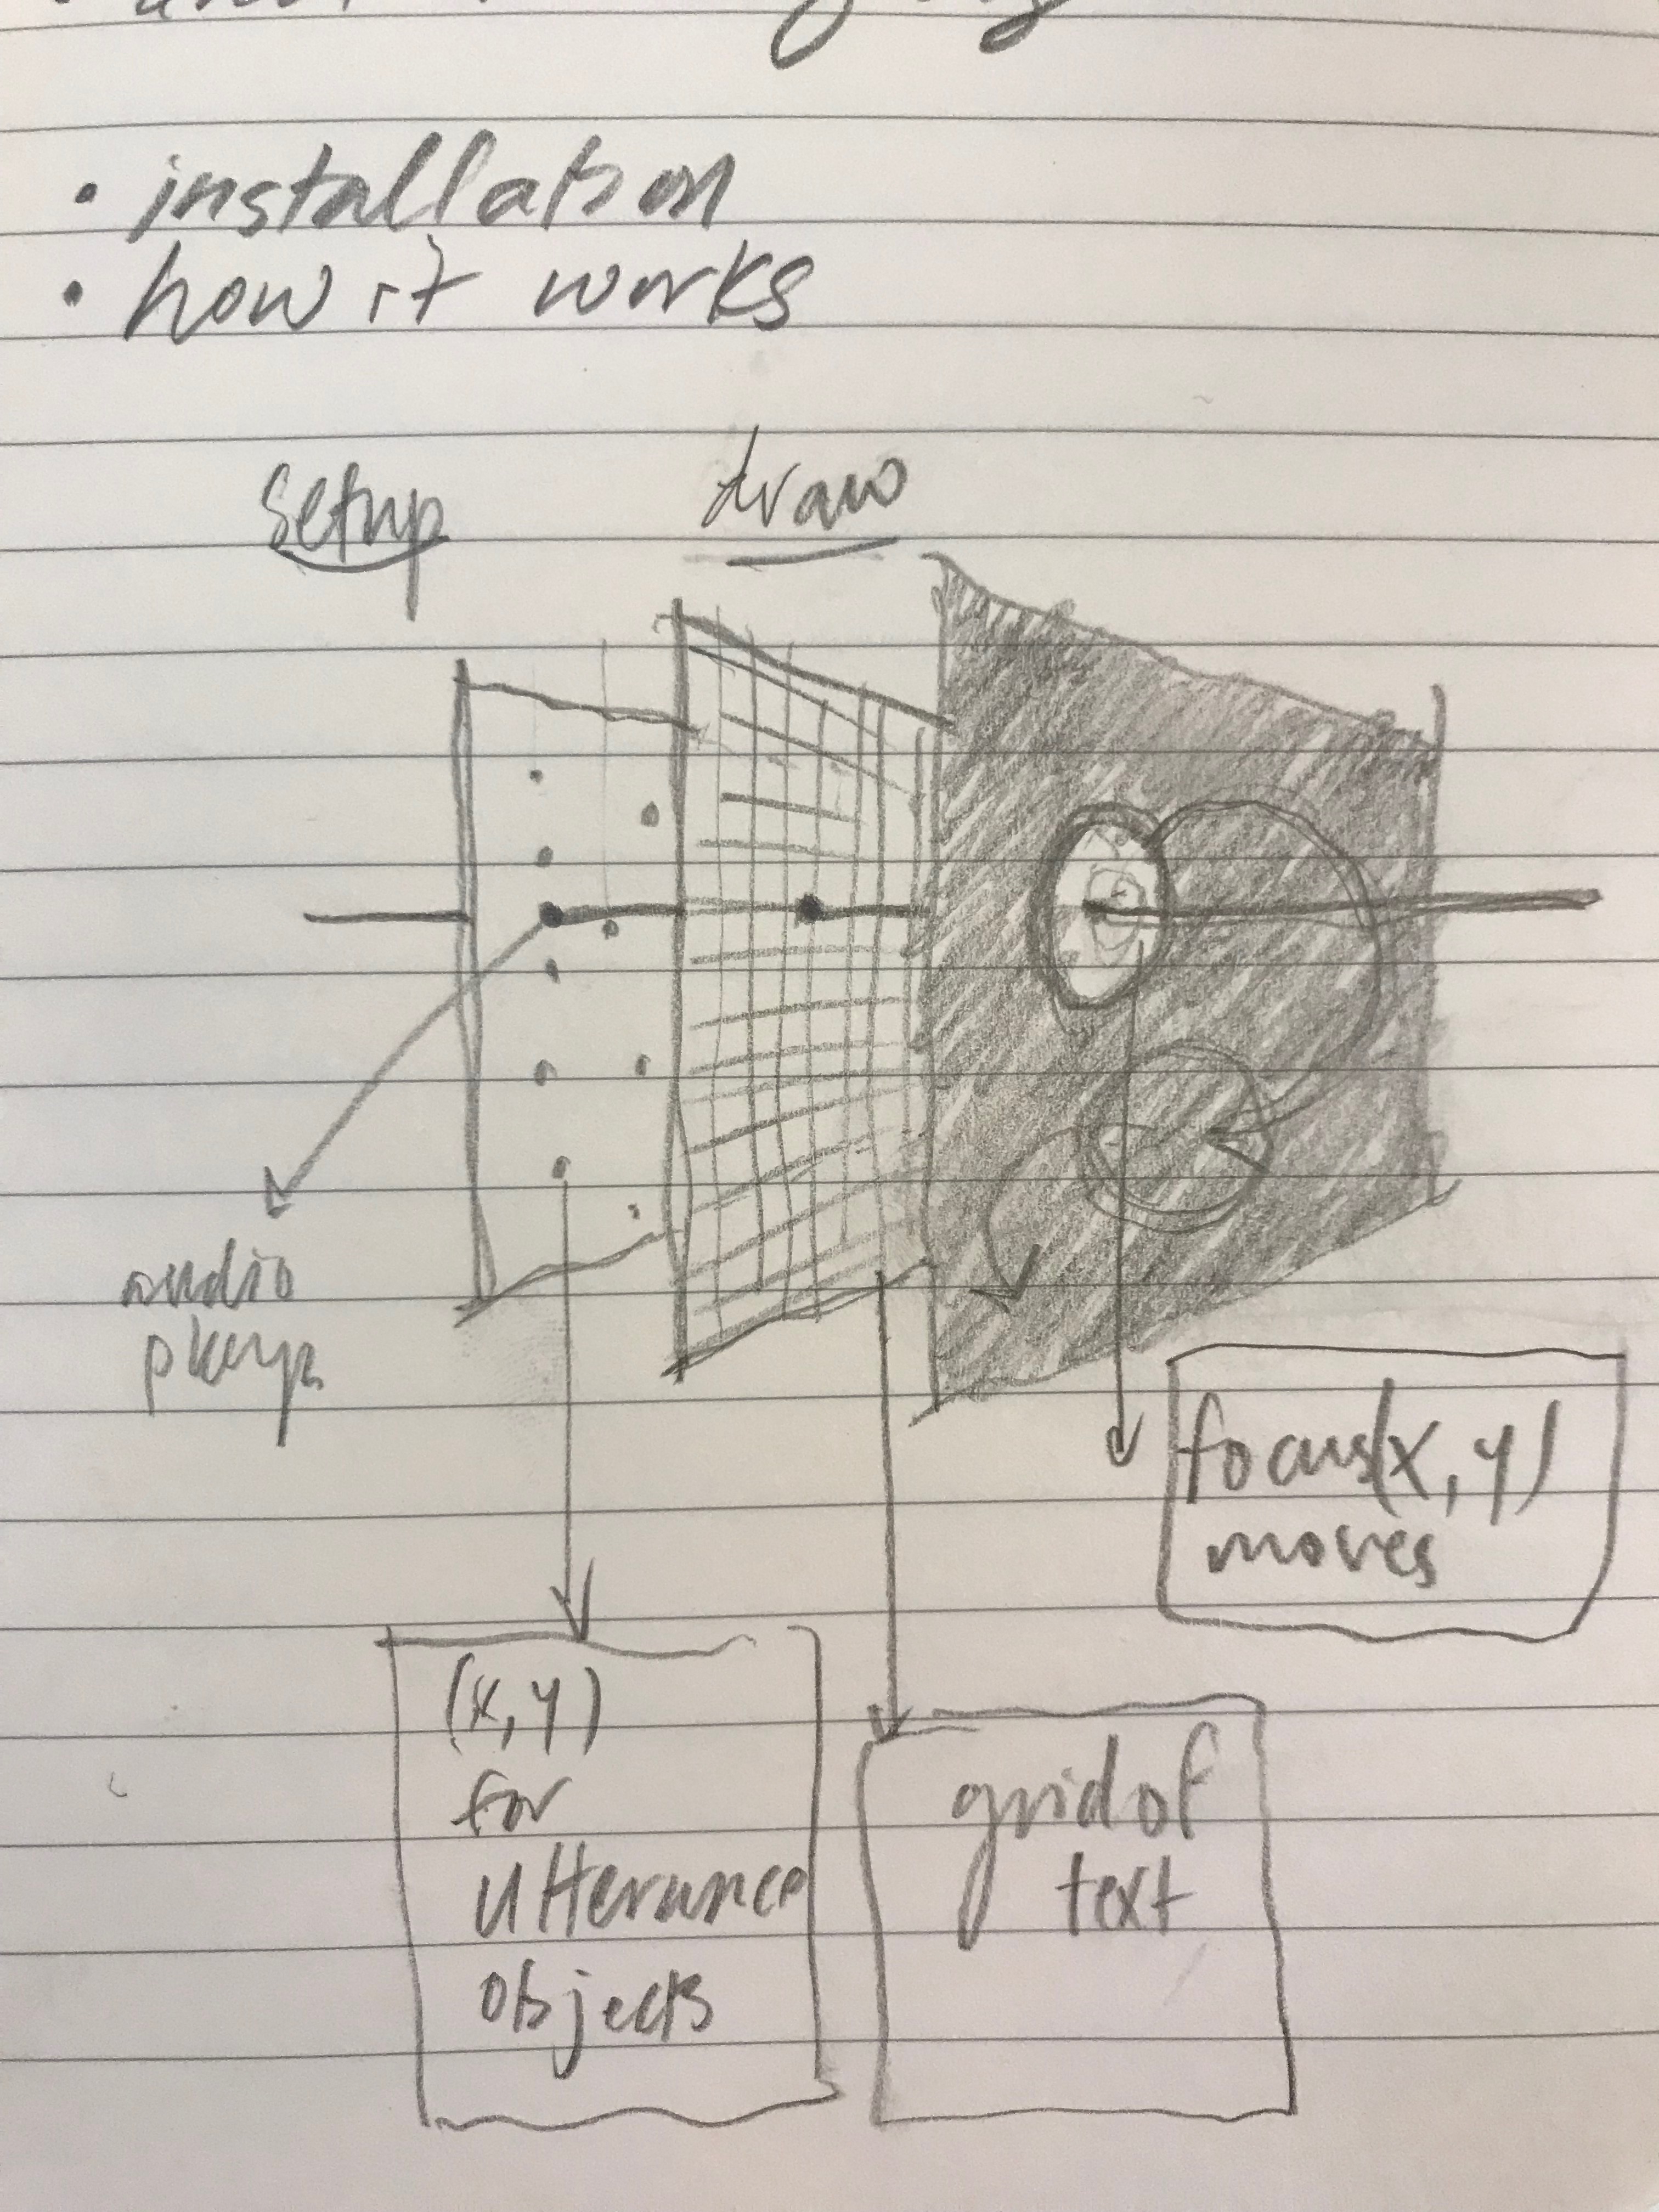 • installation
• how it works
setup
draw
audio
focus(x, y)
moves
(x, y)
for
utterance
objects
grid of
text